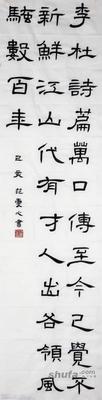 李杜詩篇萬口傳至今已覺不
新鮮江山代有才人出各領風
騷數百年
心書
shufa.com